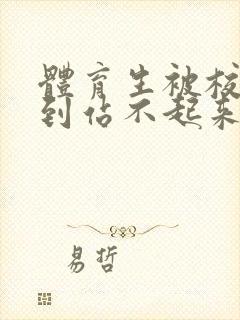 體育生被校
到佔不起來
易哲